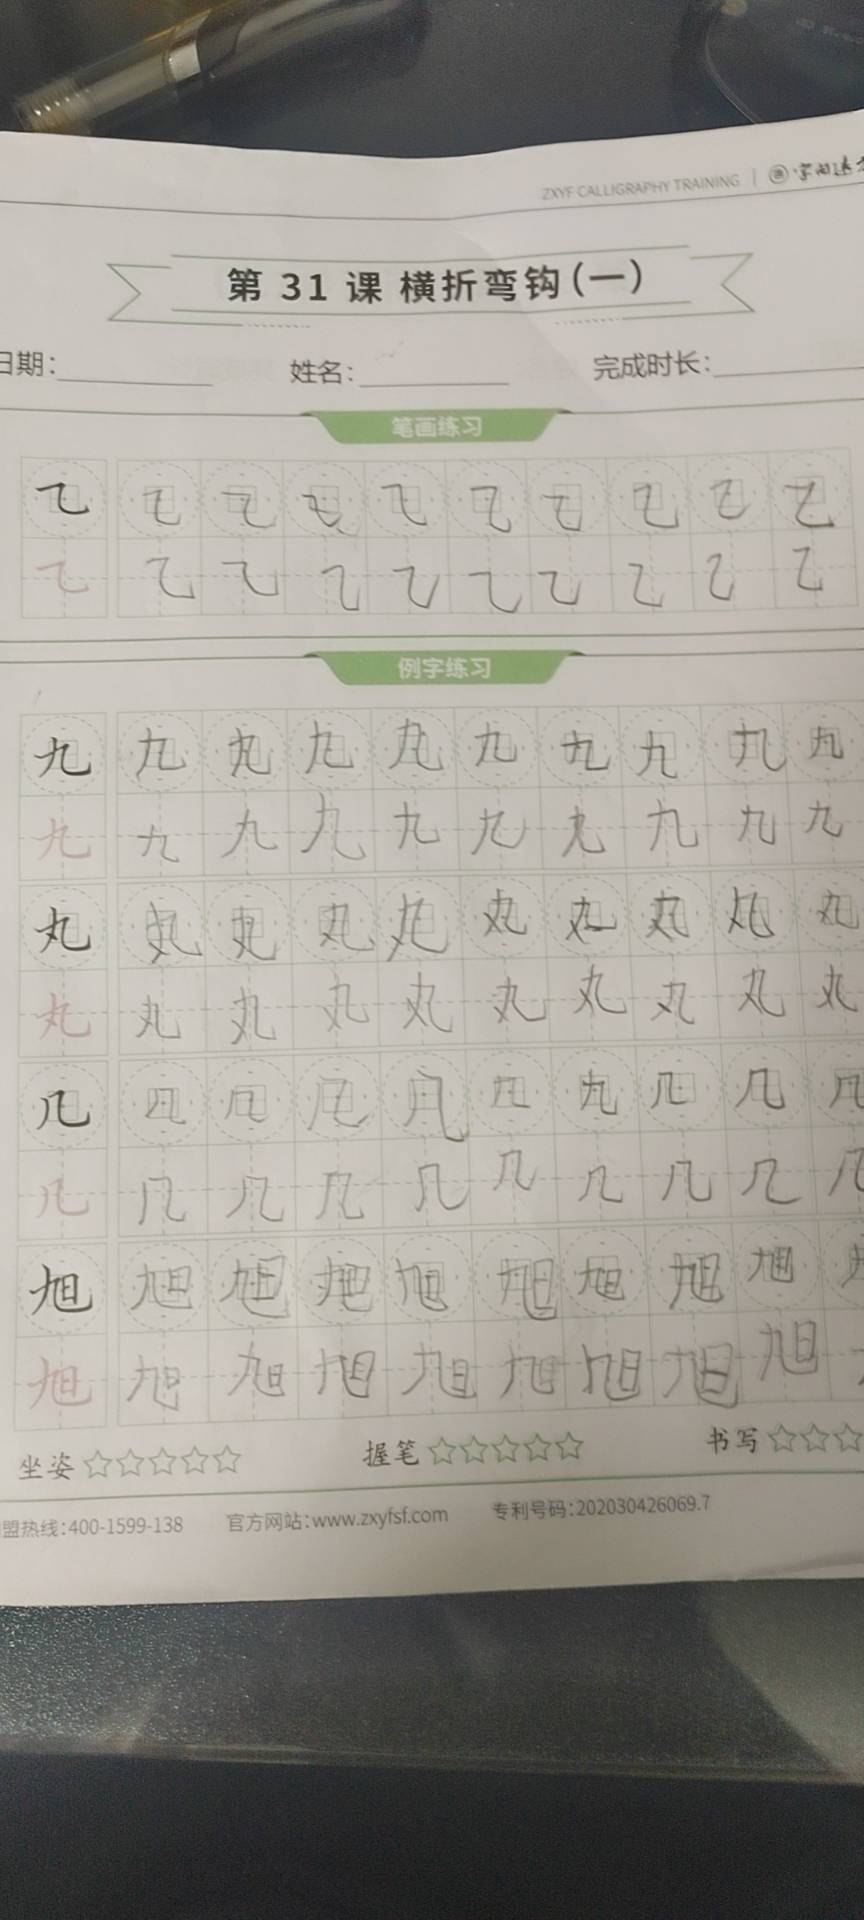 ZXYF CALLIGRAPHY TRAINING
第 31 课 横折弯钩(一)
日期: 姓名: 完成时长:
笔画练习
例字练习
九 九 九 九 九 九 九 九 九 九
九 九 九 九 九 九 九 九 九 九
丸 丸 丸 丸 丸 丸 丸 丸 丸 丸
丸 丸 丸 丸 丸 丸 丸 丸 丸 丸
几 几 几 几 几 几 九 几 几 几
几 几 几 几 几 几 几 几 几 几
旭 旭 旭 旭 旭 旭 旭 旭 旭
旭 旭 旭 旭 旭 旭 旭 旭 旭
坐姿 握笔 书写
盟热线:400-1599-138 官方网站:www.zxyfsf.com 专利号码:202030426069.7